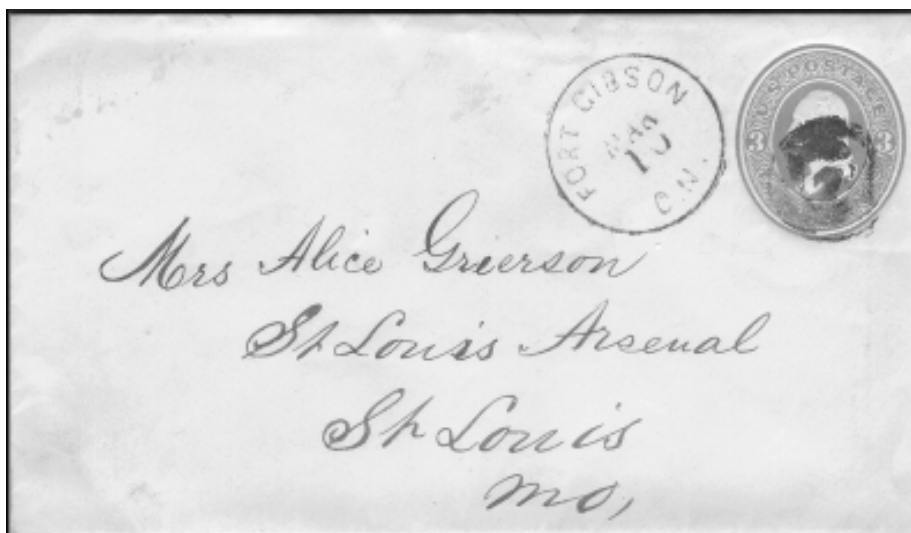 FORT GIBSON
MAR
10
C.N.
U.S. POSTAGE
3 3
Mrs Alice Grierson
St Louis Arsenal
St Louis
Mo,